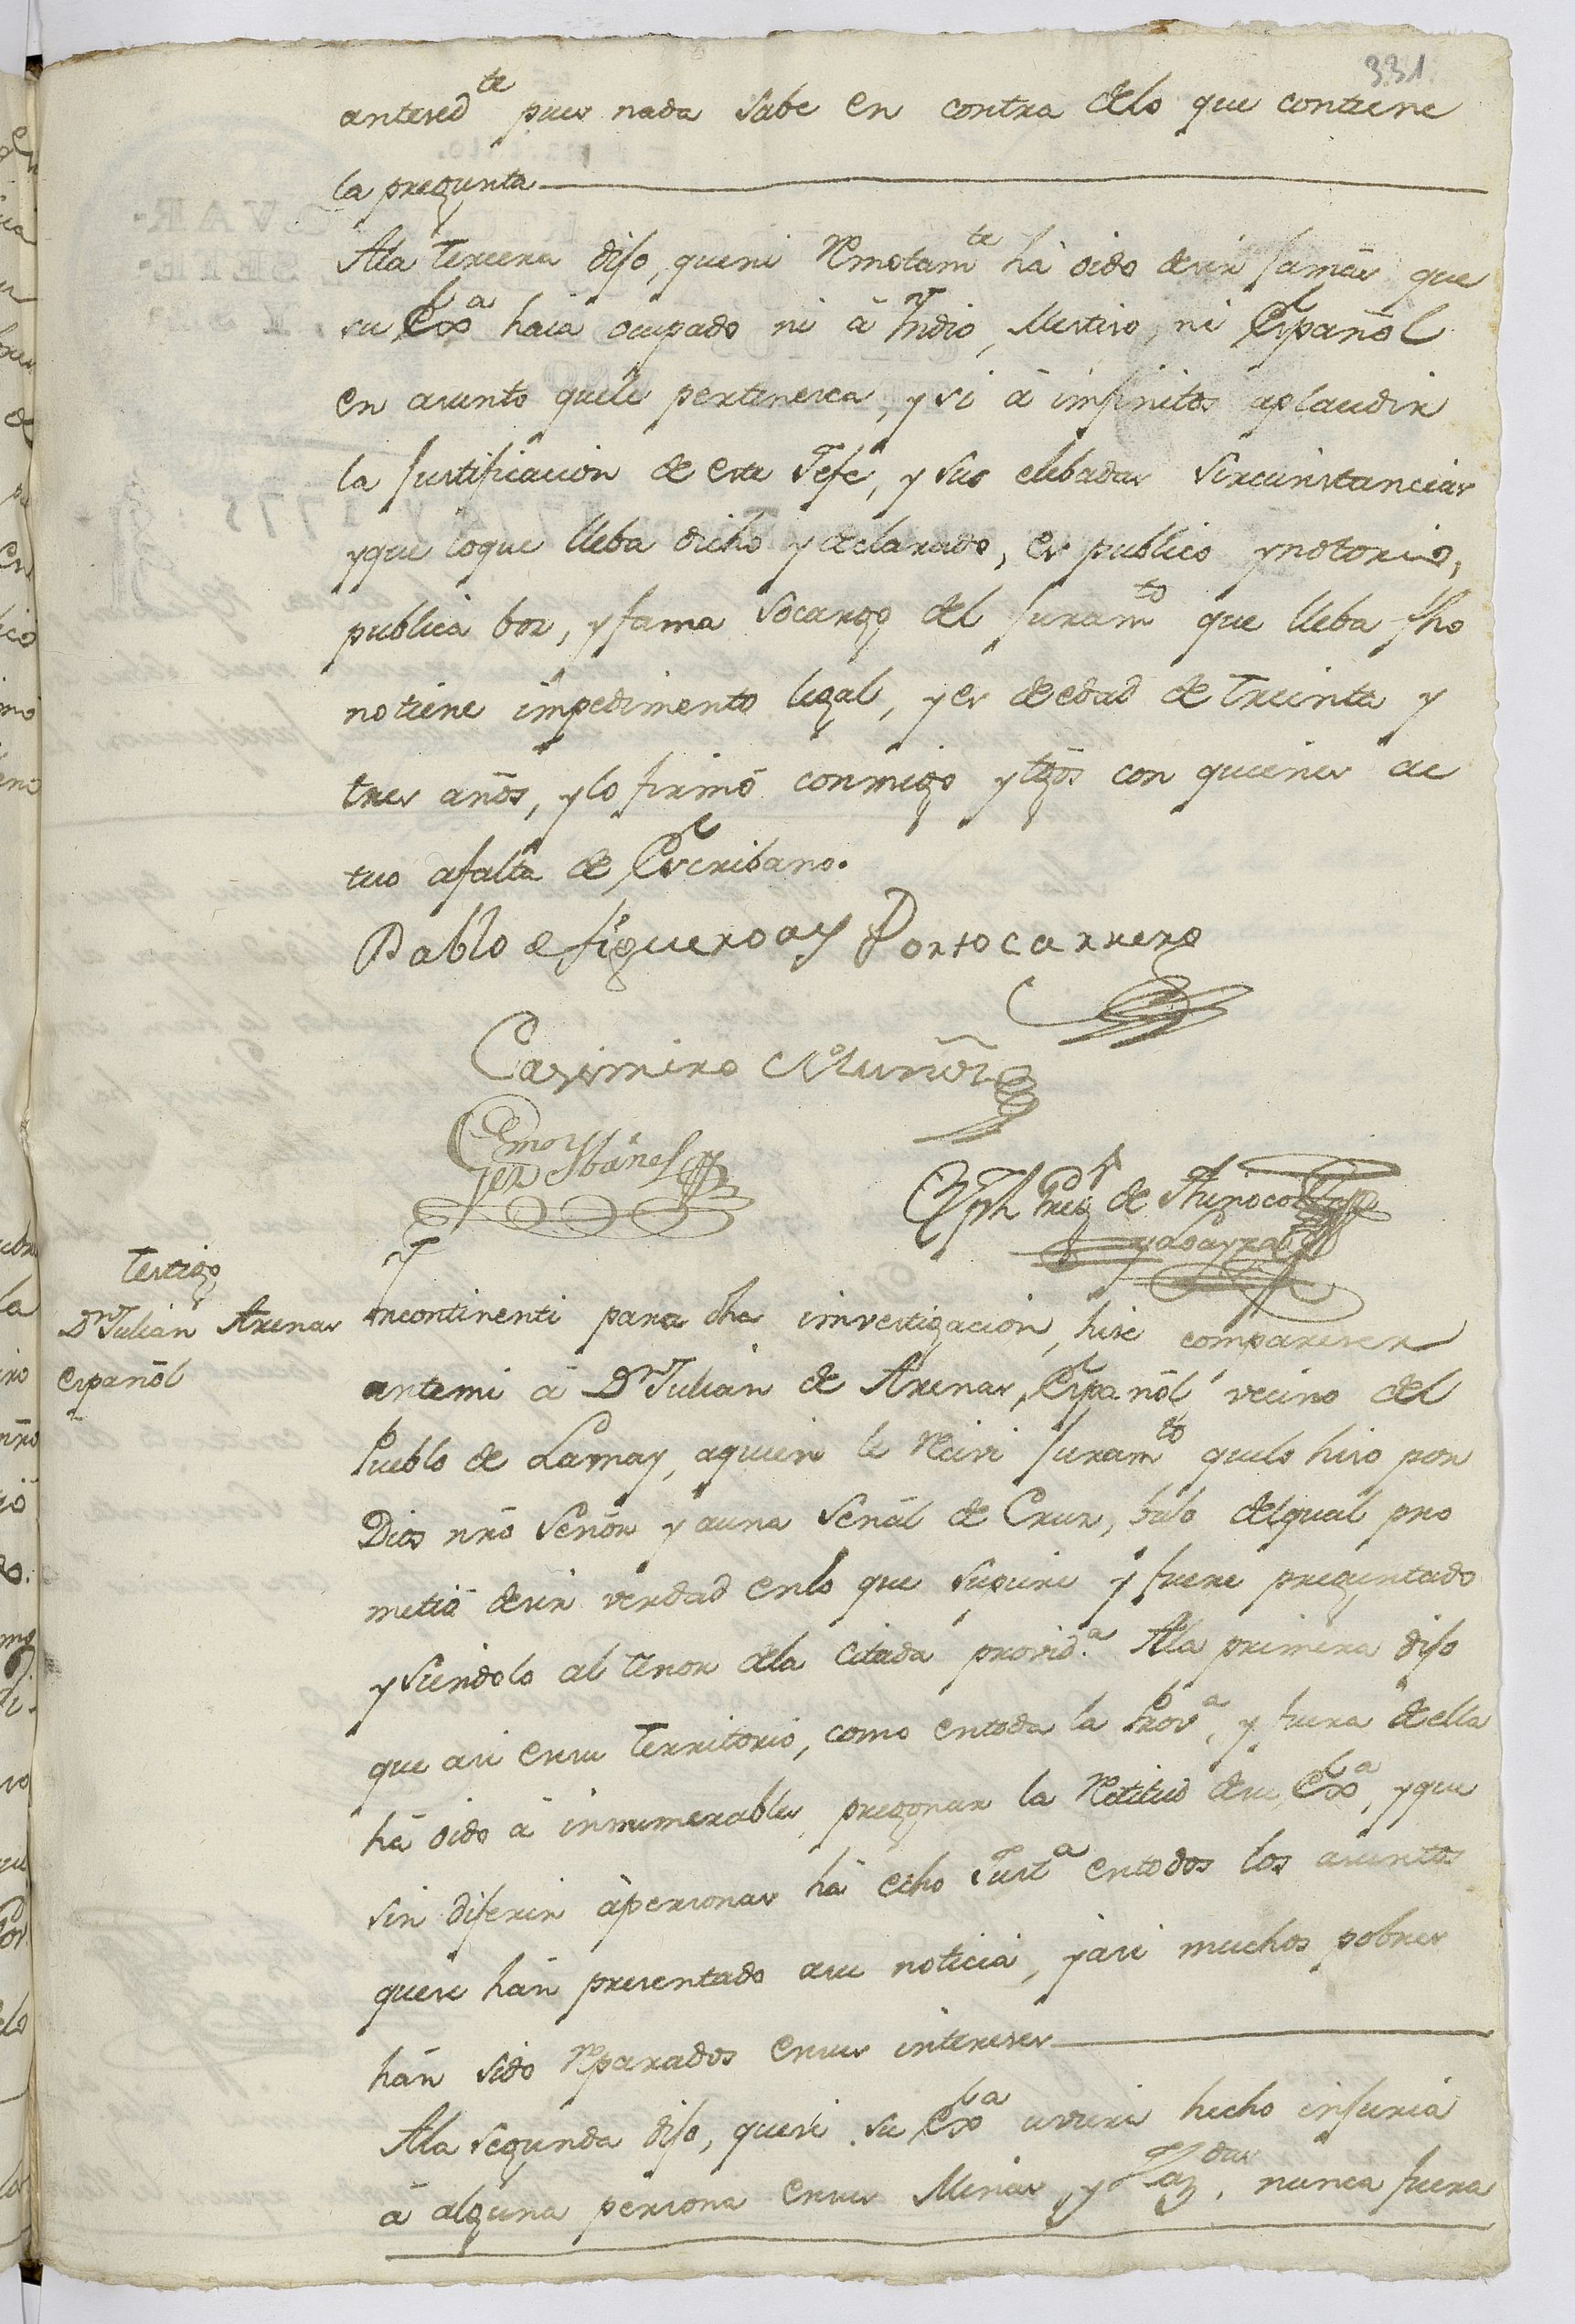 331
antesed.te pues nada sabe en contra delo que contiene
la pregunta
Ala Tercera dijo, que ni Remotam.te há oido desir jamás que
su Ex.a haia ocupado ni á Indio, Mestiso, ni Español
en asunto quele pertenesca, y si á infinitos aplaudir
la justificacion de este Jefe, y sus elebadas sircunstancias
yque loque lleba dicho y declarado, es publico ynotorio,
publica bos, y fama socargo del juram.to que lleba fho
notiene impedimento legal, y es de edad de Treinta y
tres años, y lo firmó conmigo y tgos con quienes ac
tuo afalta de Escribano.
Pablo de figueroa y Portocarrero
Casimiro Muños
Ybañes
de Tinoco
y Loayza
Testigo
Dn Julian Arenas
español
Yncontinenti para dha imvestigacion, hise compareser
antemi á Dn Julian de Arenas, Español vecino del
Pueblo de Lamay, aquien le Resivi juram.to quelo hiso por
Dios nro Señor y auna Señal de Crus, bajo delqual pro
metió desir verdad enlo que supiere y fuere preguntado
y siendolo al tenor dela citada provid.a Ala primera dijo
que asi ensu Territorio, como entoda la Prov.a, y fuera de ella
há oido á innumerables, pregonar la Rectitud desu Ex.a, yque
sin diferir ápersonas há echo Just.a entodos los asuntos
quese hán presentado asu noticia, yasi muchos pobres
hán sido Reparados ensus intereses
Ala segunda dijo, quesi su Ex.a uviese hecho injuria
á alguna persona ensus Minas, y Haz.das, nunca fuera